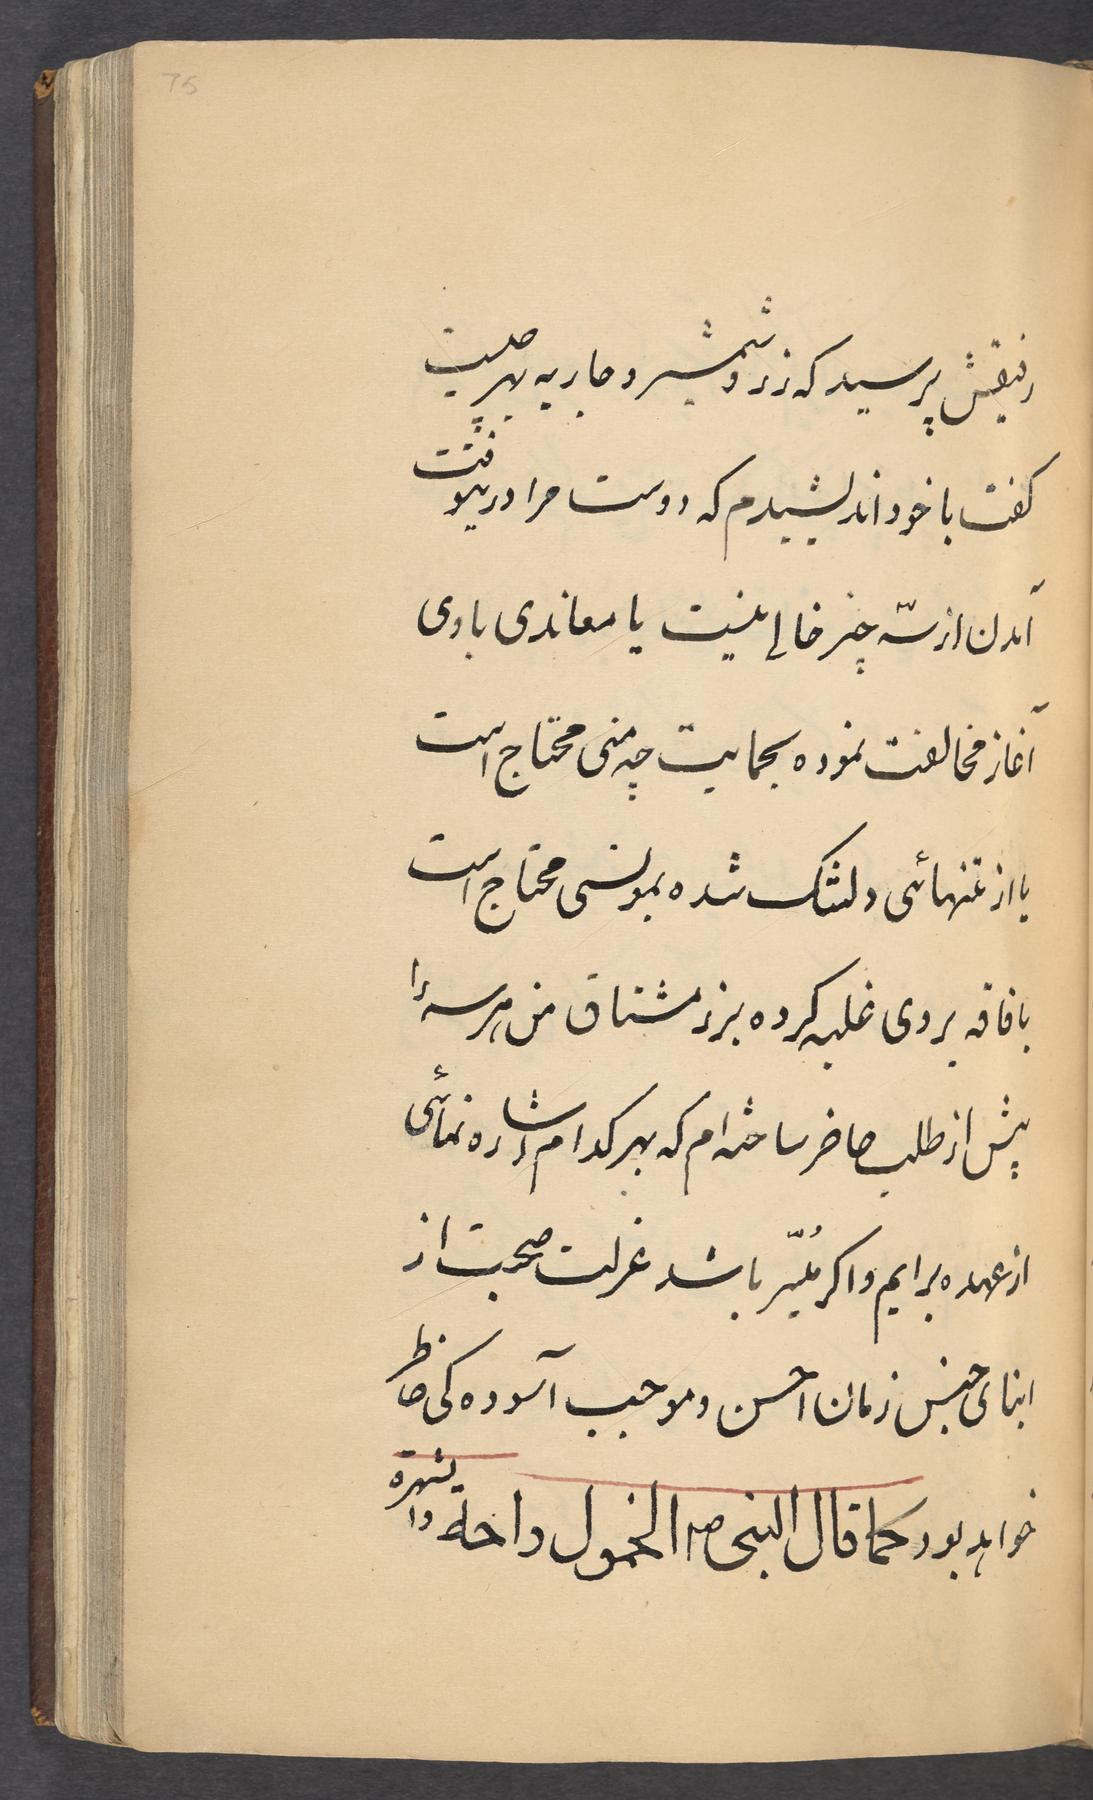 75
رفیقش پرسید که زر و شمشیر و جاریه بهر چیست
کفت با خود اندیشیدم که دوست مرا درین وقت
آمدن از سه چیز خالے نیست یا معاندی با وی
آغاز مخالفت نموده بحمایت چه منی محتاج است
یا از تنهائی دلتنک شده بمونسی محتاج است
یا فاقه بر وی غلبه کرده بزر مشتاق من هر سه را
پیش از طلب حاضر ساخته ام که بهر کدام اشاره نمائی
از عهده برایم و اکر میسّر باشد عزلت صحبت از
ابنای جنس زمان احسن و موجب آسوده کی خاطر
خواهد بود کما قال النبی ص الخمول راحة والشهرة